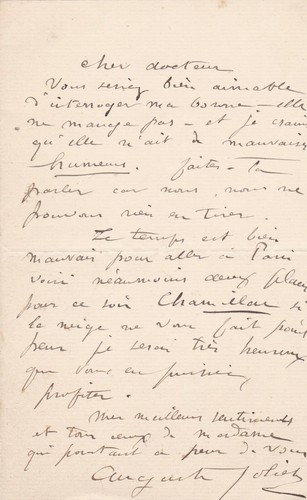 cher docteur
Vous seriez bien aimable
d'interroger ma bonne - elle
ne mange pas - et je crains
qu'elle n'ait de mauvaises
humeurs. faites-la
parler car nous, nous ne
pouvons rien en tirer.
Le temps est bien
mauvais pour aller à Paris
voici néanmoins deux places
pour ce soir Chamillac si
la neige ne vous fait pas
peur je serai très heureux
que vous en puissiez
profiter.
Mes meilleurs sentiments
et tous ceux de madame
qui pourtant a peur de vous
Auguste Joliet